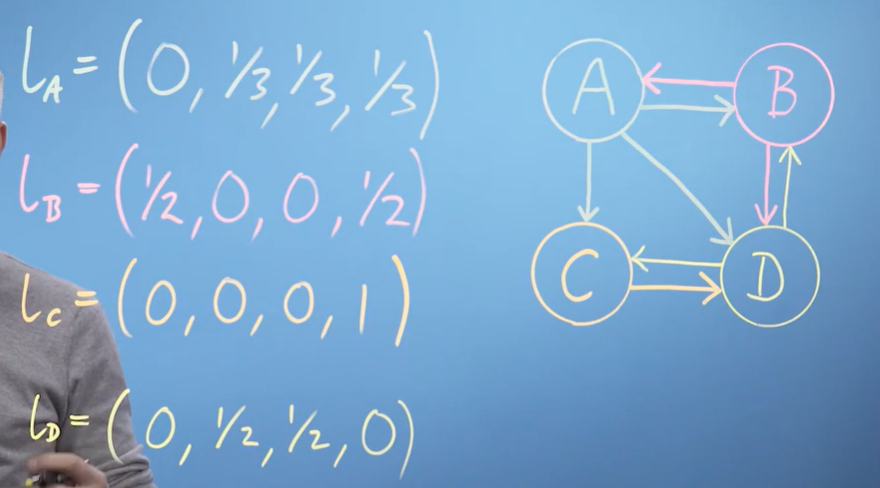 l_A = (0, 1/3, 1/3, 1/3)
l_B = (1/2, 0, 0, 1/2)
l_C = (0, 0, 0, 1)
l_D = (0, 1/2, 1/2, 0)
A B
C D